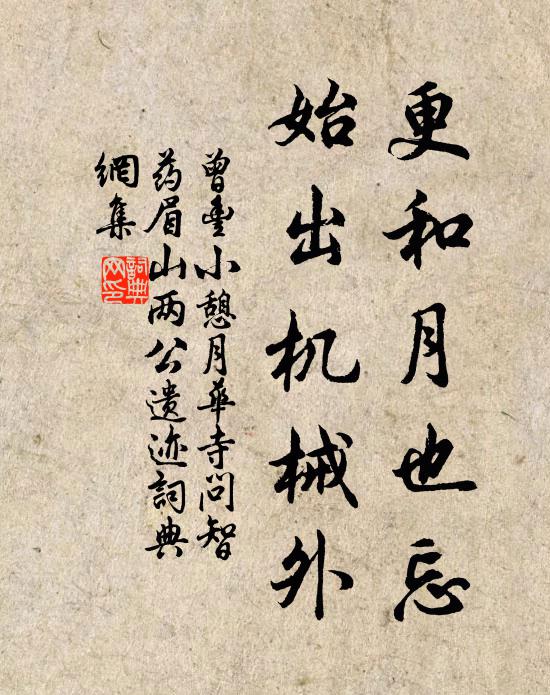 更和月也忘
始出机械外
曾丰小憩月华寺问智
药眉山两公遗迹詞典
網集
詞典網印